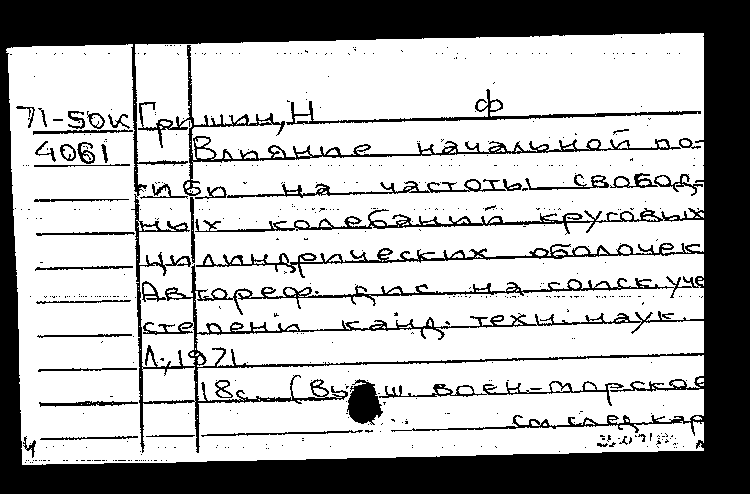 71-50к Гришин, Н ф
4061 Влияние начальной по-
гиби на частоты свобод-
ных колебаний круговых
цилиндрических оболочек
Автореф. дис. на соиск. уче
степени канд. техн. наук.
Л., 1971.
18с. (Высш. воен-морское
см. след. кар
4